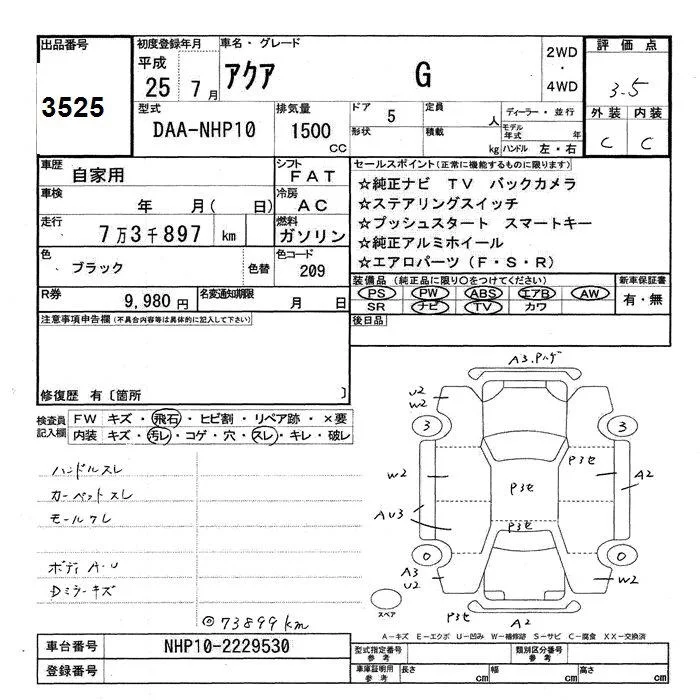 出品番号
3525
初度登録年月
平成
25 7月
車名・グレード
アクア G
2WD
・
4WD
評価点
3.5
外装 内装
C C
型式
DAA-NHP10
排気量
1500
CC
ドア 5
定員 人
形状
積載 kg
ディーラー・並行
モデル年式 年
ハンドル 左・右
車歴
自家用
シフト
FAT
車検
年 月( 日)
冷房
AC
走行
7万3千897 km
燃料
ガソリン
色
ブラック
色替
色コード
209
R券
9,980円
名変通知期限
月 日
セールスポイント(正常に機能するものに限ります)
☆純正ナビ TV バックカメラ
☆ステアリングスイッチ
☆プッシュスタート スマートキー
☆純正アルミホイール
☆エアロパーツ(F・S・R)
装備品(純正品に限り○をつけてください)
PS PW ABS エアB AW
SR ナビ TV カワ
新車保証書
有・無
後日品
注意事項申告欄(不具合内容等は具体的に記入して下さい)
修復歴 有〔箇所 〕
検査員記入欄
FW キズ・飛石・ヒビ割・リペア跡・×要
内装 キズ・汚レ・コゲ・穴・スレ・キレ・破レ
ハンドルスレ
カーペットスレ
モールワレ
ボディ A・U
Dミラーキズ
◎73899km
A3.Pハゲ
U2
W2
3
3
P3セ
A2
W2
P3セ
AU3
P3セ
0
0
A3
U2
W2
スペア
P3セ
A2
A-キズ E-エクボ U-凹み W-補修跡 S-サビ C-腐食 XX-交換済
車台番号
NHP10-2229530
登録番号
型式指定番号
参考
類別区分番号
参考
車庫証明用
参考
長さ cm
幅 cm
高さ cm